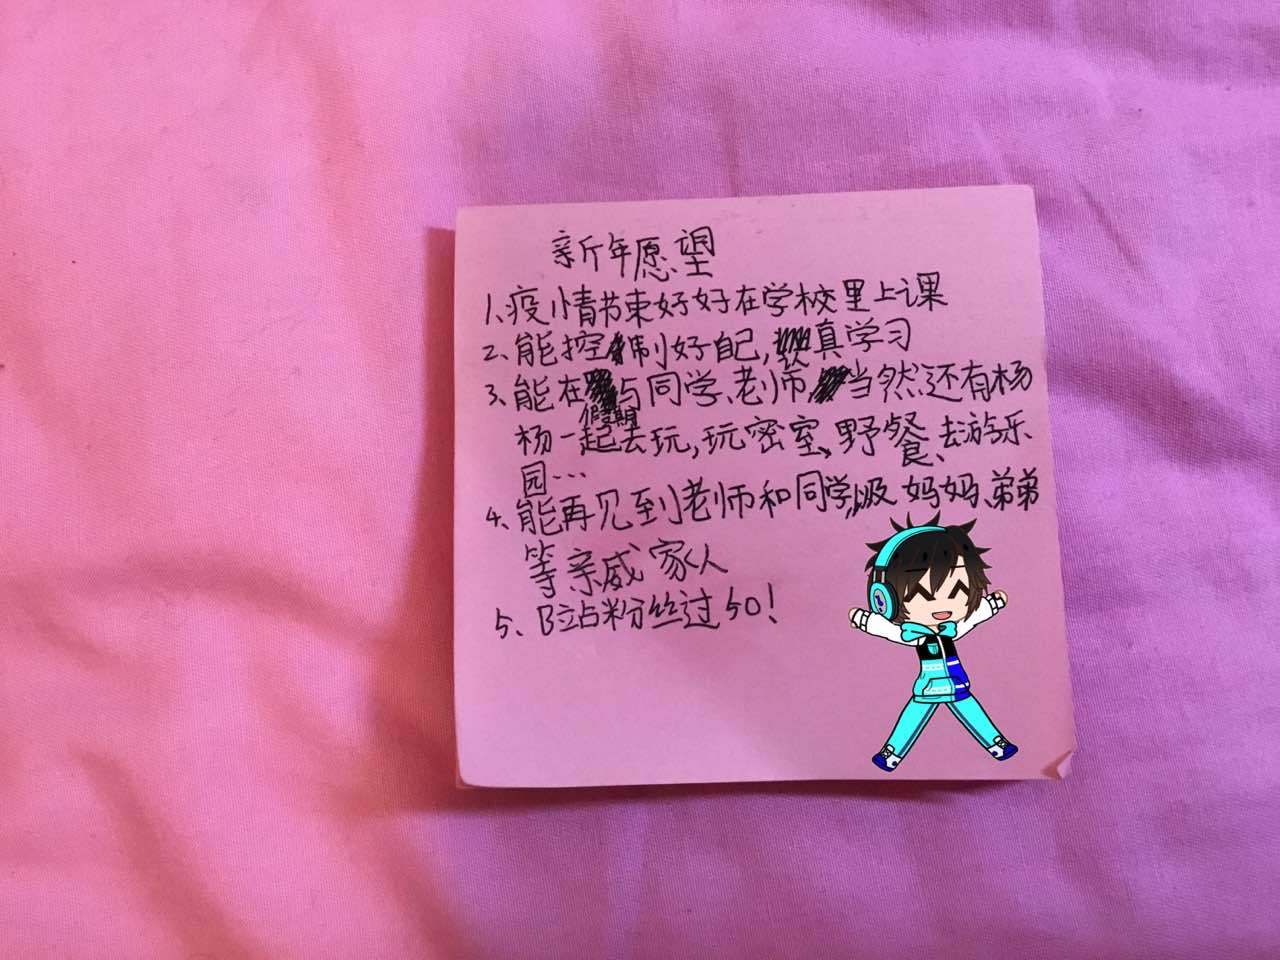 新年愿望
1、疫情节束好好在学校里上课
2、能控制好自己,认真学习
3、能在假期与同学、老师,当然还有杨
杨一起去玩,玩密室、野餐、去游乐
园…
4、能再见到老师和同学,以及妈妈、弟弟
等亲戚家人
5、B站粉丝过50!